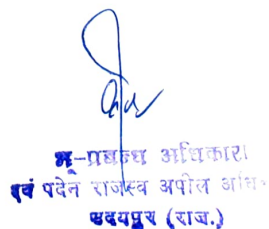 भू-प्रबन्ध अधिकारी
एवं पदेन राजस्व अपील अधि
उदयपुर (राज.)